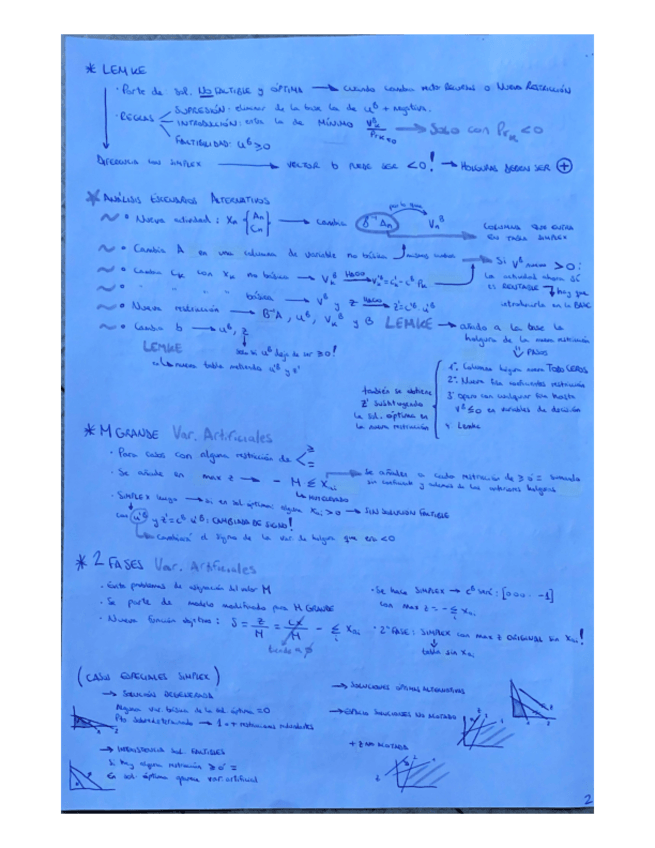 * LEMKE
· Parte de sol. NO FACTIBLE y ÓPTIMA → cuando cambio recursos o NUEVA RESTRICCIÓN
· REGLAS
SUPRESIÓN: eliminar de la base la de u^B + negativa.
INTRODUCCIÓN: entra la de MÍNIMO V_k^B → Solo con Pr_k < 0
FACTIBILIDAD: u^B ≥ 0
DIFERENCIA CON SIMPLEX → VECTOR b PUEDE SER < 0! → HOLGURAS DEBEN SER +
* ANÁLISIS ESCENARIOS ALTERNATIVOS
• Nueva actividad: X_n {A_n C_n} → cambia B^-1 A_n por lo que V_n^B
COLUMNA QUE ENTRA
EN TABLA SIMPLEX
• Cambia A en una columna de variable no básica
Si V^B nuevo > 0:
la actividad ahora sí
es RENTABLE → hay que
introducirla en la BASE
• Cambia C_k con X_k no básica → V_k^B
" " " básica → V^B y Z → z'=c^B u^B
• Nueva restricción → B^-1 A, u^B, V_k^B y B LEMKE → añado a la base la
holgura de la nueva restricción
PASOS
• Cambio b → u^B, z
LEMKE
solo si u^B deja de ser ≥ 0!
nueva tabla metiendo u'^B y z'
1º. Columna holgura nueva TODO CEROS
2º. Nueva fila coeficientes restricción
3º opero con cualquier fila hasta
V^B ≤ 0 en variables de decisión
Lemke
también se obtiene
z' substituyendo
la sol. óptima en
la nueva restricción
* M GRANDE Var. Artificiales
· Para casos con alguna restricción de ≥ =
· Se añade en max z → - M Σ X_ai
LA M ES GRANDE
se añaden a cada restricción de ≥ ó =
sin coeficiente y además de las anteriores holguras
· SIMPLEX luego → si en sol. óptima: alguna X_ai > 0 → SIN SOLUCIÓN FACTIBLE
con u^B y z'=c^B u^B: CAMBIAR DE SIGNO!
cambiará el signo de la var. de holgura que era < 0
* 2 FASES Var. Artificiales
· Evita problemas de asignación del valor M
· Se parte de modelo modificado para M GRANDE
· Nueva función objetivo: δ = z/M = cx/M - Σ X_ai
tiende a 0
· Se hace SIMPLEX → c^B será: [0 0 0 · -1]
con max z = - Σ X_ai
· 2ª FASE: SIMPLEX con max z ORIGINAL sin X_ai!
tabla sin X_ai
(CASOS ESPECIALES SIMPLEX)
→ SOLUCIÓN DEGENERADA
Alguna var. básica de la sol. óptima = 0
Pto Sobredeterminado → 1 o + restricciones redundantes
→ INEXISTENCIA SOL. FACTIBLES
Si hay alguna restricción ≥ ó =
En sol. óptima aparece var. artificial
→ SOLUCIONES ÓPTIMAS ALTERNATIVAS
→ ESPACIO SOLUCIONES NO ACOTADO
+ Z NO ACOTADA
2